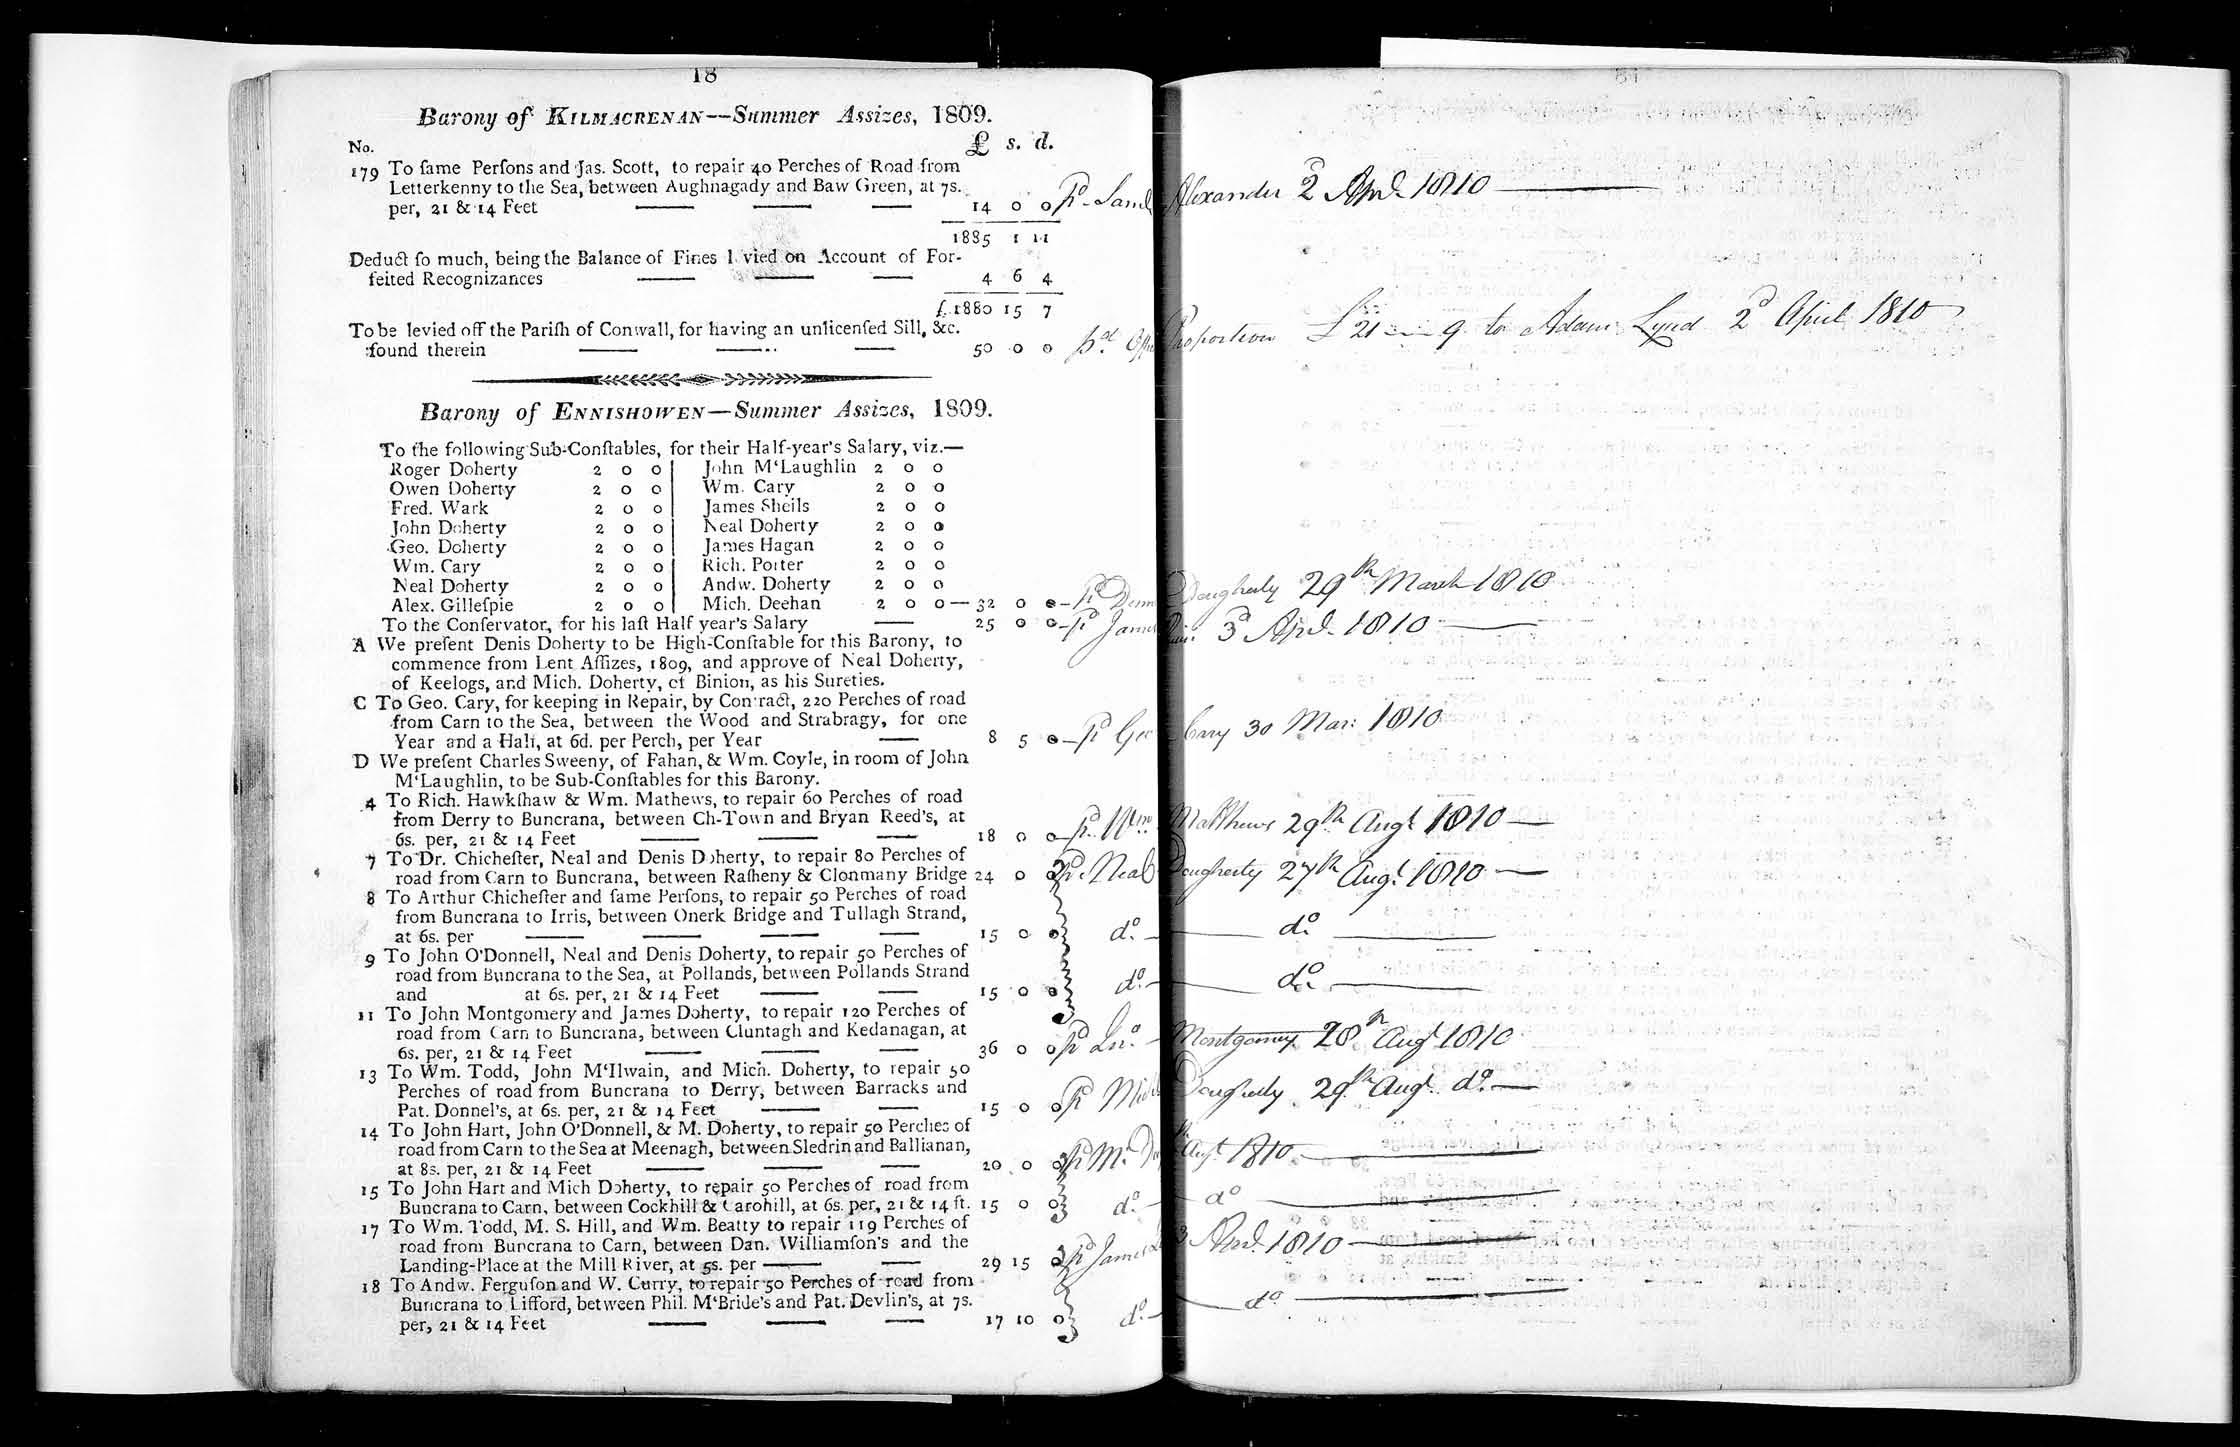 18
Barony of KILMACRENAN--Summer Assizes, 1809.
No. £ s. d.
179 To ſame Perſons and Jas. Scott, to repair 40 Perches of Road from
Letterkenny to the Sea, between Aughnagady and Baw Green, at 7s.
per, 21 & 14 Feet 14 0 0 Pd Saml Alexander 2d Aprl 1810
1885 1 11
Deduct ſo much, being the Balance of Fines l vied on Account of For-
feited Recognizances 4 6 4
£.1880 15 7
To be levied off the Pariſh of Conwall, for having an unlicenſed Sill, &c.
found therein 50 0 0 Proportion £21 9 to Adam Lynd 2d April 1810
Barony of ENNISHOWEN—Summer Assizes, 1809.
To the following Sub-Conſtables, for their Half-year's Salary, viz.—
Roger Doherty 2 0 0 | John M'Laughlin 2 0 0
Owen Doherty 2 0 0 | Wm. Cary 2 0 0
Fred. Wark 2 0 0 | James Sheils 2 0 0
John Doherty 2 0 0 | Neal Doherty 2 0 0
Geo. Doherty 2 0 0 | James Hagan 2 0 0
Wm. Cary 2 0 0 | Rich. Porter 2 0 0
Neal Doherty 2 0 0 | Andw. Doherty 2 0 0
Alex. Gilleſpie 2 0 0 | Mich. Deehan 2 0 0— 32 0 0 – Pd Denn Dougherty 29th March 1810
To the Conſervator, for his laſt Half year's Salary 25 0 0 – Pd James 3d Aprl 1810
A We preſent Denis Doherty to be High-Conſtable for this Barony, to
commence from Lent Aſſizes, 1809, and approve of Neal Doherty,
of Keelogs, and Mich. Doherty, of Binion, as his Sureties.
C To Geo. Cary, for keeping in Repair, by Contract, 220 Perches of road
from Carn to the Sea, between the Wood and Strabragy, for one
Year and a Half, at 6d. per Perch, per Year 8 5 0 – Pd Geo Cary 30 Mar: 1810
D We preſent Charles Sweeny, of Fahan, & Wm. Coyle, in room of John
M'Laughlin, to be Sub-Conſtables for this Barony.
4 To Rich. Hawkſhaw & Wm. Mathews, to repair 60 Perches of road
from Derry to Buncrana, between Ch-Town and Bryan Reed's, at
6s. per, 21 & 14 Feet 18 0 0 – Pd Wm Matthews 29th Augt 1810
7 To Dr. Chicheſter, Neal and Denis Doherty, to repair 80 Perches of
road from Carn to Buncrana, between Raſheny & Clonmany Bridge 24 0 0 Pd Neal Dougherty 27th Augt 1810
8 To Arthur Chicheſter and ſame Perſons, to repair 50 Perches of road
from Buncrana to Irris, between Onerk Bridge and Tullagh Strand,
at 6s. per 15 0 0 do. do.
9 To John O'Donnell, Neal and Denis Doherty, to repair 50 Perches of
road from Buncrana to the Sea, at Pollands, between Pollands Strand
and at 6s. per, 21 & 14 Feet 15 0 0 do. do.
11 To John Montgomery and James Doherty, to repair 120 Perches of
road from Carn to Buncrana, between Cluntagh and Kedanagan, at
6s. per, 21 & 14 Feet 36 0 0 Pd Jno. Montgomery 28th Augt 1810
13 To Wm. Todd, John M'Ilwain, and Mich. Doherty, to repair 50
Perches of road from Buncrana to Derry, between Barracks and
Pat. Donnel's, at 6s. per, 21 & 14 Feet 15 0 0 Pd Dougherty 29th Augt do.
14 To John Hart, John O'Donnell, & M. Doherty, to repair 50 Perches of
road from Carn to the Sea at Meenagh, between Sledrin and Ballianan,
at 8s. per, 21 & 14 Feet 20 0 0 Pd Augt 1810
15 To John Hart and Mich Doherty, to repair 50 Perches of road from
Buncrana to Carn, between Cockhill & Carohill, at 6s. per, 21 & 14 ft. 15 0 0 do. do
17 To Wm. Todd, M. S. Hill, and Wm. Beatty to repair 119 Perches of
road from Buncrana to Carn, between Dan. Williamſon's and the
Landing-Place at the Mill River, at 5s. per 29 15 0 Pd James 3 Aprl. 1810
18 To Andw. Ferguſon and W. Curry, to repair 50 Perches of road from
Buncrana to Lifford, between Phil. M'Bride's and Pat. Devlin's, at 7s.
per, 21 & 14 Feet 17 10 0 do. do